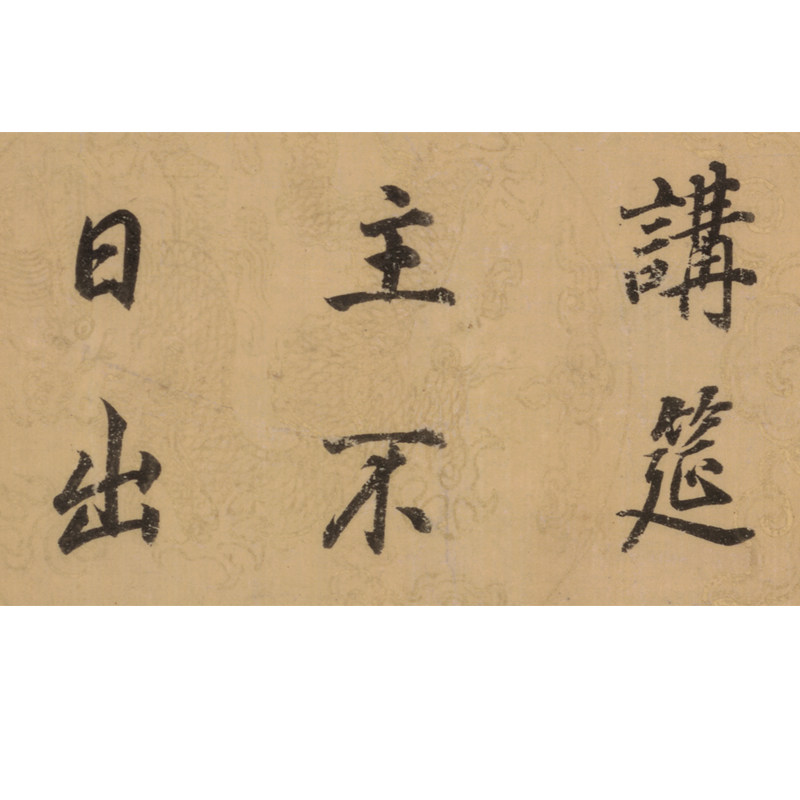 講筵
主不
日出